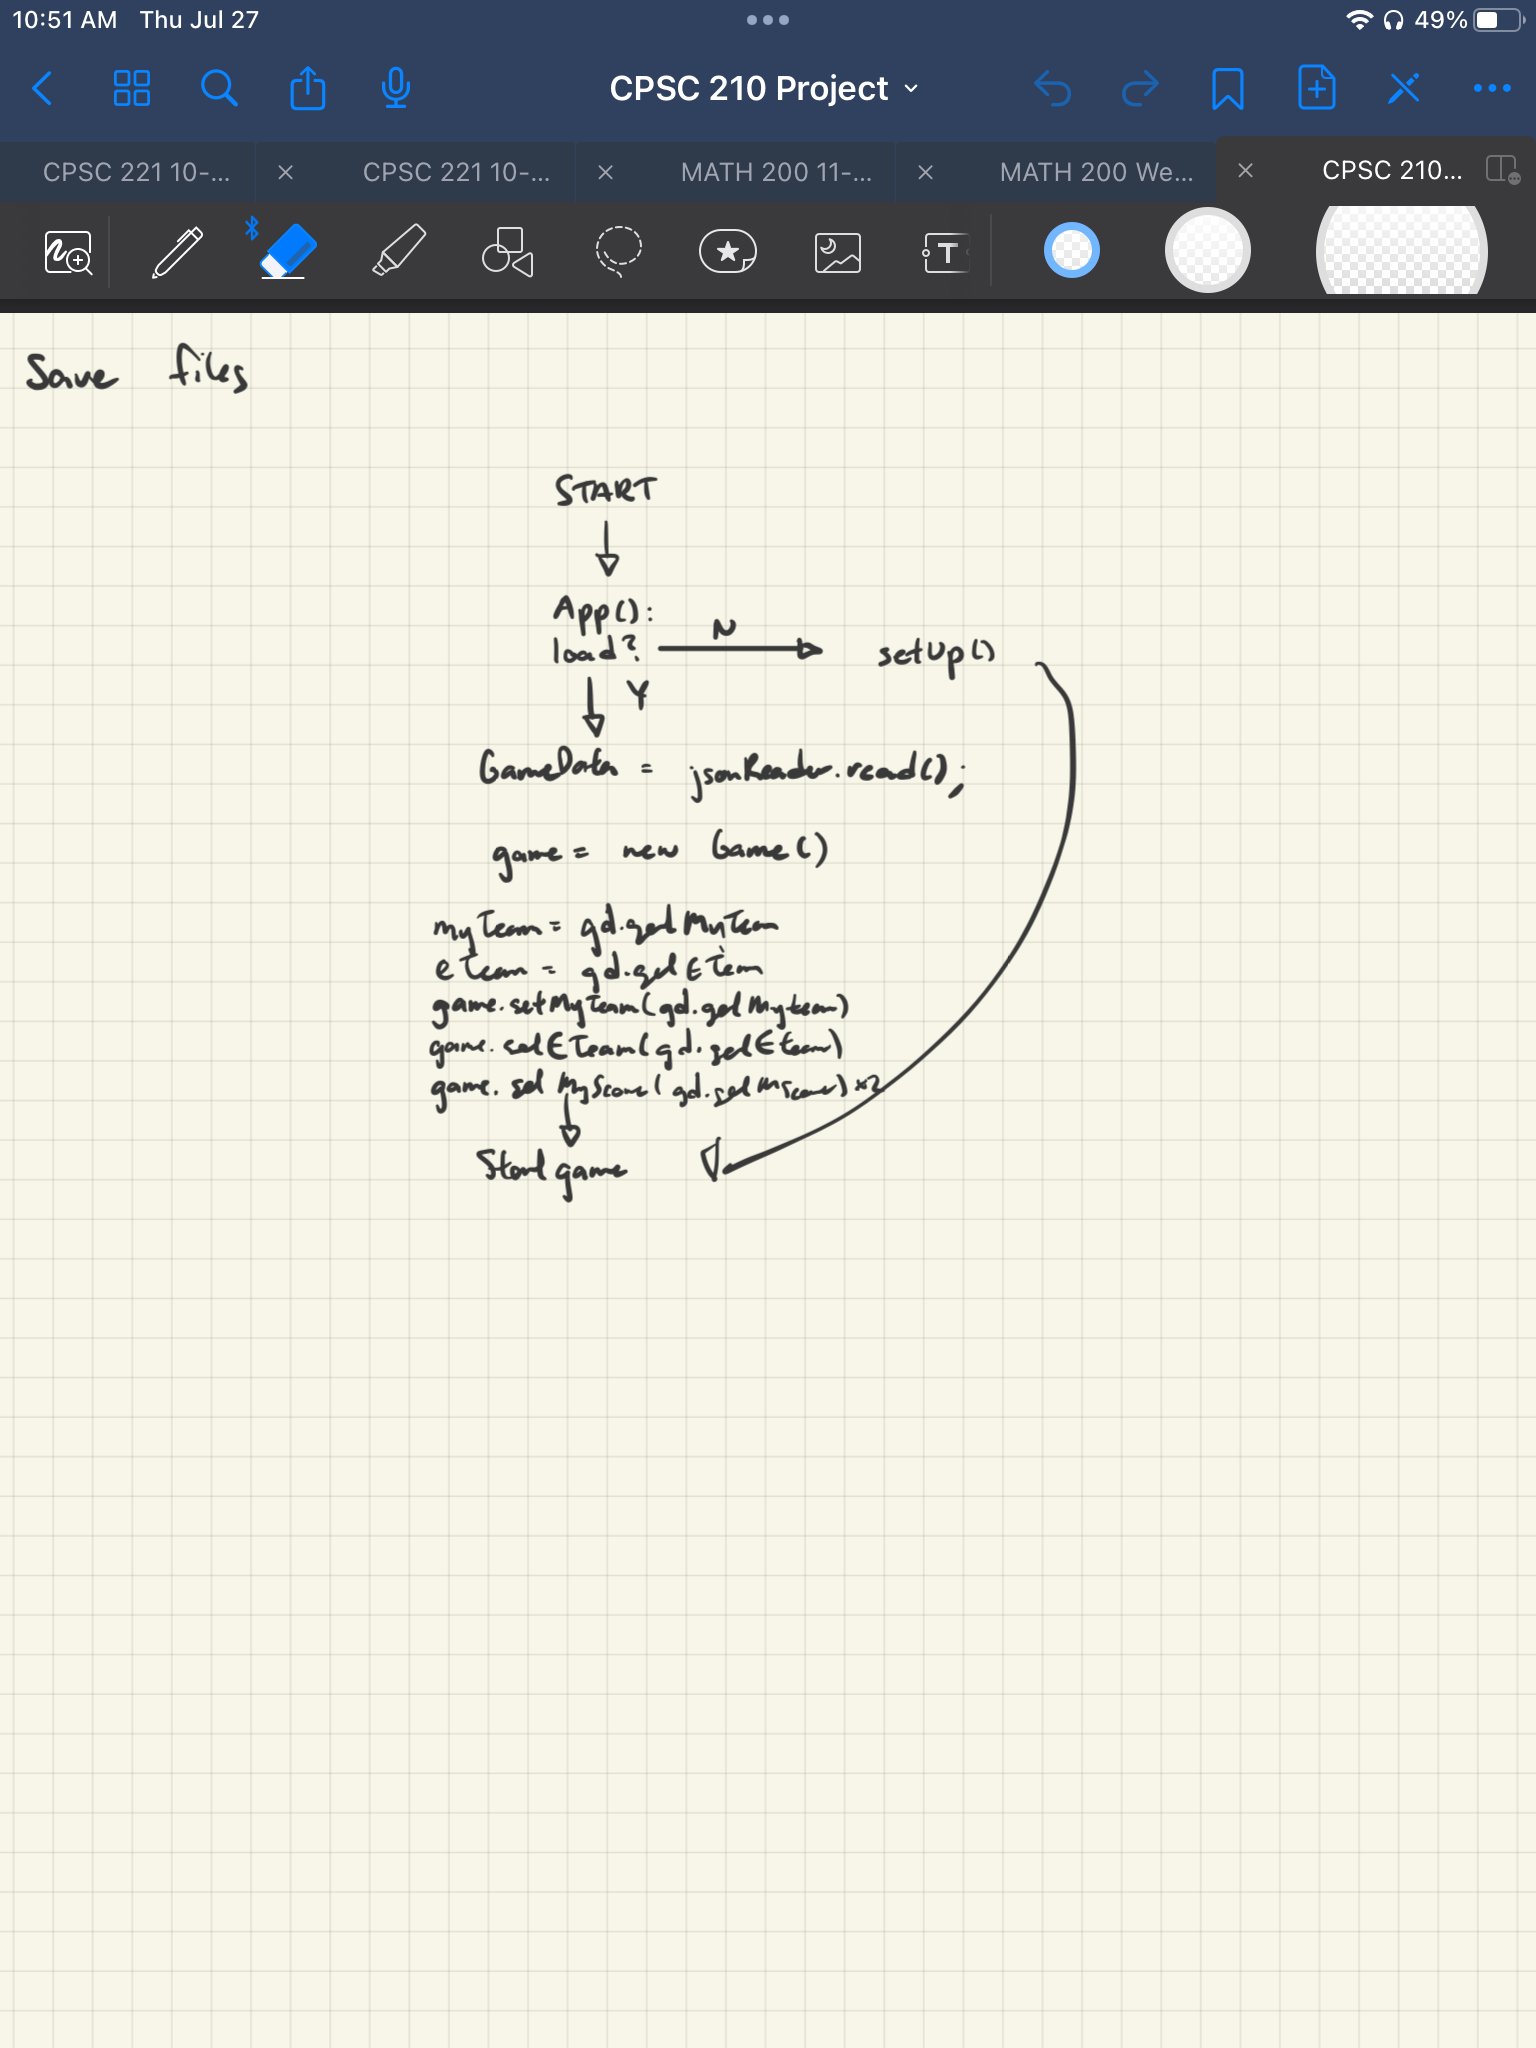 10:51 AM Thu Jul 27
49%
CPSC 210 Project
CPSC 221 10-...
CPSC 221 10-...
MATH 200 11-...
MATH 200 We...
CPSC 210...
T
Save files
START
App():
load?
N
setUp()
Y
GameData = jsonReader.read();
game = new Game()
myTeam = gd.getMyTeam
eTeam = gd.getETeam
game.setMyTeam(gd.getMyteam)
game.setETeam(gd.getEteam)
game.setMyScore(gd.getMScore) x2
Start game